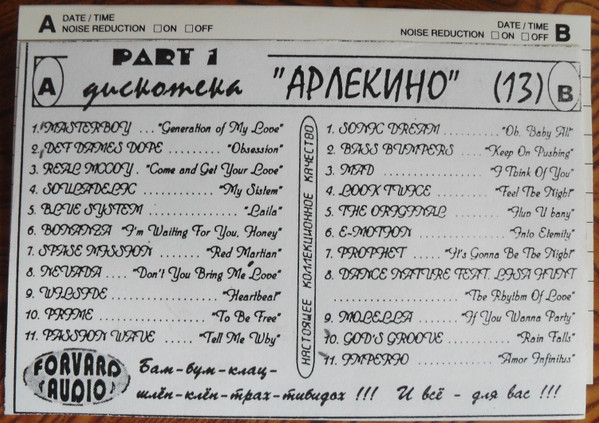 A DATE / TIME
NOISE REDUCTION □ ON □ OFF
DATE / TIME B
NOISE REDUCTION □ ON □ OFF
PART 1
A дискотека "АРЛЕКИНО" (13) B
1. MASTERBOY ... "Generation of My Love"
2. DET DAMES DOPE ......... "Obsession"
3. REAL MCCOY . "Come and Get Your Love"
4. SOULADELIC ........... "My Sistem"
5. BLUE SYSTEM ............ "Laila"
6. BONANZA "I'm Waiting For You, Honey"
7. SPASE MISSION ....... "Red Martian"
8. NEVADA .... "Don't You Bring Me Love"
9. WILSIDE .............. "Heartbeat"
10. PRIME ............... "To Be Free"
11. PASSION WAVE ...... "Tell Me Why"
НАСТОЯЩЕЕ КОЛЛЕКЦИОННОЕ КАЧЕСТВО
1. SONIC DREAM ........ "Oh, Baby All"
2. BASS BUMPERS .... "Keep On Pushing"
3. MAD .............. "I Think Of You"
4. LOOK TWICE ....... "Feel The Night"
5. THE ORIGINAL ........ "I luv U bany"
6. E-MOTION .......... "Into Eternity"
7. PROPHET ..... "It's Gonna Be The Night"
8. DANCE NATURE FEAT. LISA HUNT
............ "The Rhythm Of Love"
9. MOLELLA ....... "If You Wanna Party"
10. GOD'S GROOVE ........ "Rain Falls"
11. IMPERIO ......... "Amor Infinitus"
FORVARD AUDIO
Бам-бум-клац-
шлён-клён-трах-тибидох !!! И всё - для вас !!!